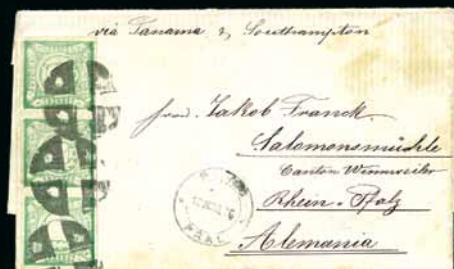 via Panama & Southampton
Jakob Franck
Salomonsmühle
Canton Winnweiler
Rhein-Pfalz
Alemania